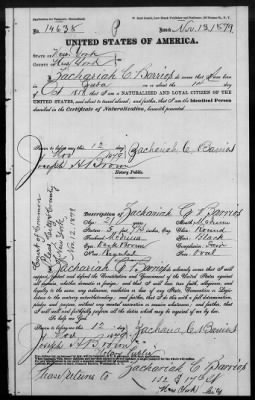 No. 14638
P
Issued Nov. 13/1879
UNITED STATES OF AMERICA.
State of New York
County of New York
I, Zachariah C. Barrios do swear that I was born
in Cuba on the
Oct 1858 that I am a NATURALIZED AND LOYAL CITIZEN OF THE
UNITED STATES, and about to travel abroad; and further, that I am the Identical Person
described in the Certificate of Naturalization, herewith presented.
Sworn to before me this 12 day
of Nov 1879
Zachariah C. Barrios
Joseph H. Brown
Notary Public.
Court of Common
Pleas City & County
of New York
Nov. 12. 1879
Description of Zachariah C. Barrios
Age: 21
Stature: 5
Mouth: Medium
Chin: Round
Hair: Black
Eyes: Dark Brown
Complexion: Fair
Nose: Regular
Face: Oval
I, Zachariah C. Barrios solemnly swear that I will
support, protect and defend the Constitution and Government of the United States against
all enemies, whether domestic or foreign; and that I will bear true faith, allegiance,
and loyalty to the same, any ordinance, resolution or law of any State, Convention or Legislature
to the contrary notwithstanding; and further, that I do this with a full determination,
pledge and purpose, without any mental reservation or evasion whatsoever; and further, that I
will well and faithfully perform all the duties which may be required of me by law.
So help me God.
Sworn to before me this 12 day
of Nov 1879
Zachariah C. Barrios
Joseph H. Brown
Notary Public
Zachariah C. Barrios
New York City